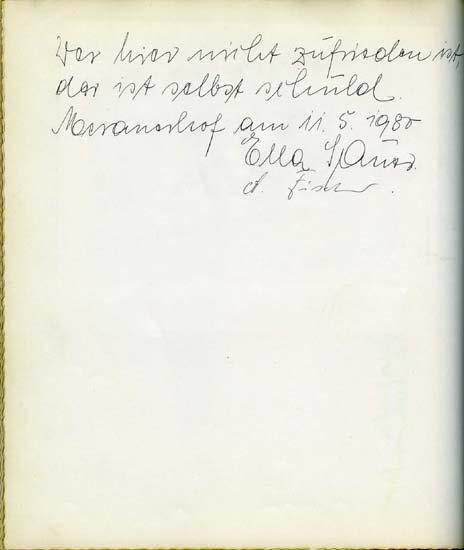 Wer hier nicht zufrieden ist,
der ist selbst schuld.
Meranerhof am 11. 5. 1980
Ella